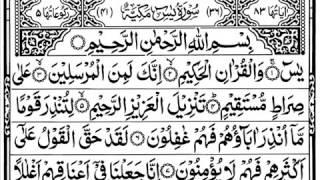 اٰیَاتُهَا ٨٣ (٣٦) سُوْرَةُ يٰسٓ مَكِّيَّةٌ (٤١) رُكُوْعَاتُهَا ٥
بِسْمِ اللّٰهِ الرَّحْمٰنِ الرَّحِيْمِ
يٰسٓ ۞ وَالْقُرْاٰنِ الْحَكِيْمِ ۞ اِنَّكَ لَمِنَ الْمُرْسَلِيْنَ ۞ عَلٰى
صِرَاطٍ مُّسْتَقِيْمٍ ۞ تَنْزِيْلَ الْعَزِيْزِ الرَّحِيْمِ ۞ لِتُنْذِرَ قَوْمًا
مَّاۤ اُنْذِرَ اٰبَآؤُهُمْ فَهُمْ غٰفِلُوْنَ ۞ لَقَدْ حَقَّ الْقَوْلُ عَلٰۤى
اَكْثَرِهِمْ فَهُمْ لَا يُؤْمِنُوْنَ ۞ اِنَّا جَعَلْنَا فِيْۤ اَعْنَاقِهِمْ اَغْلٰلًا